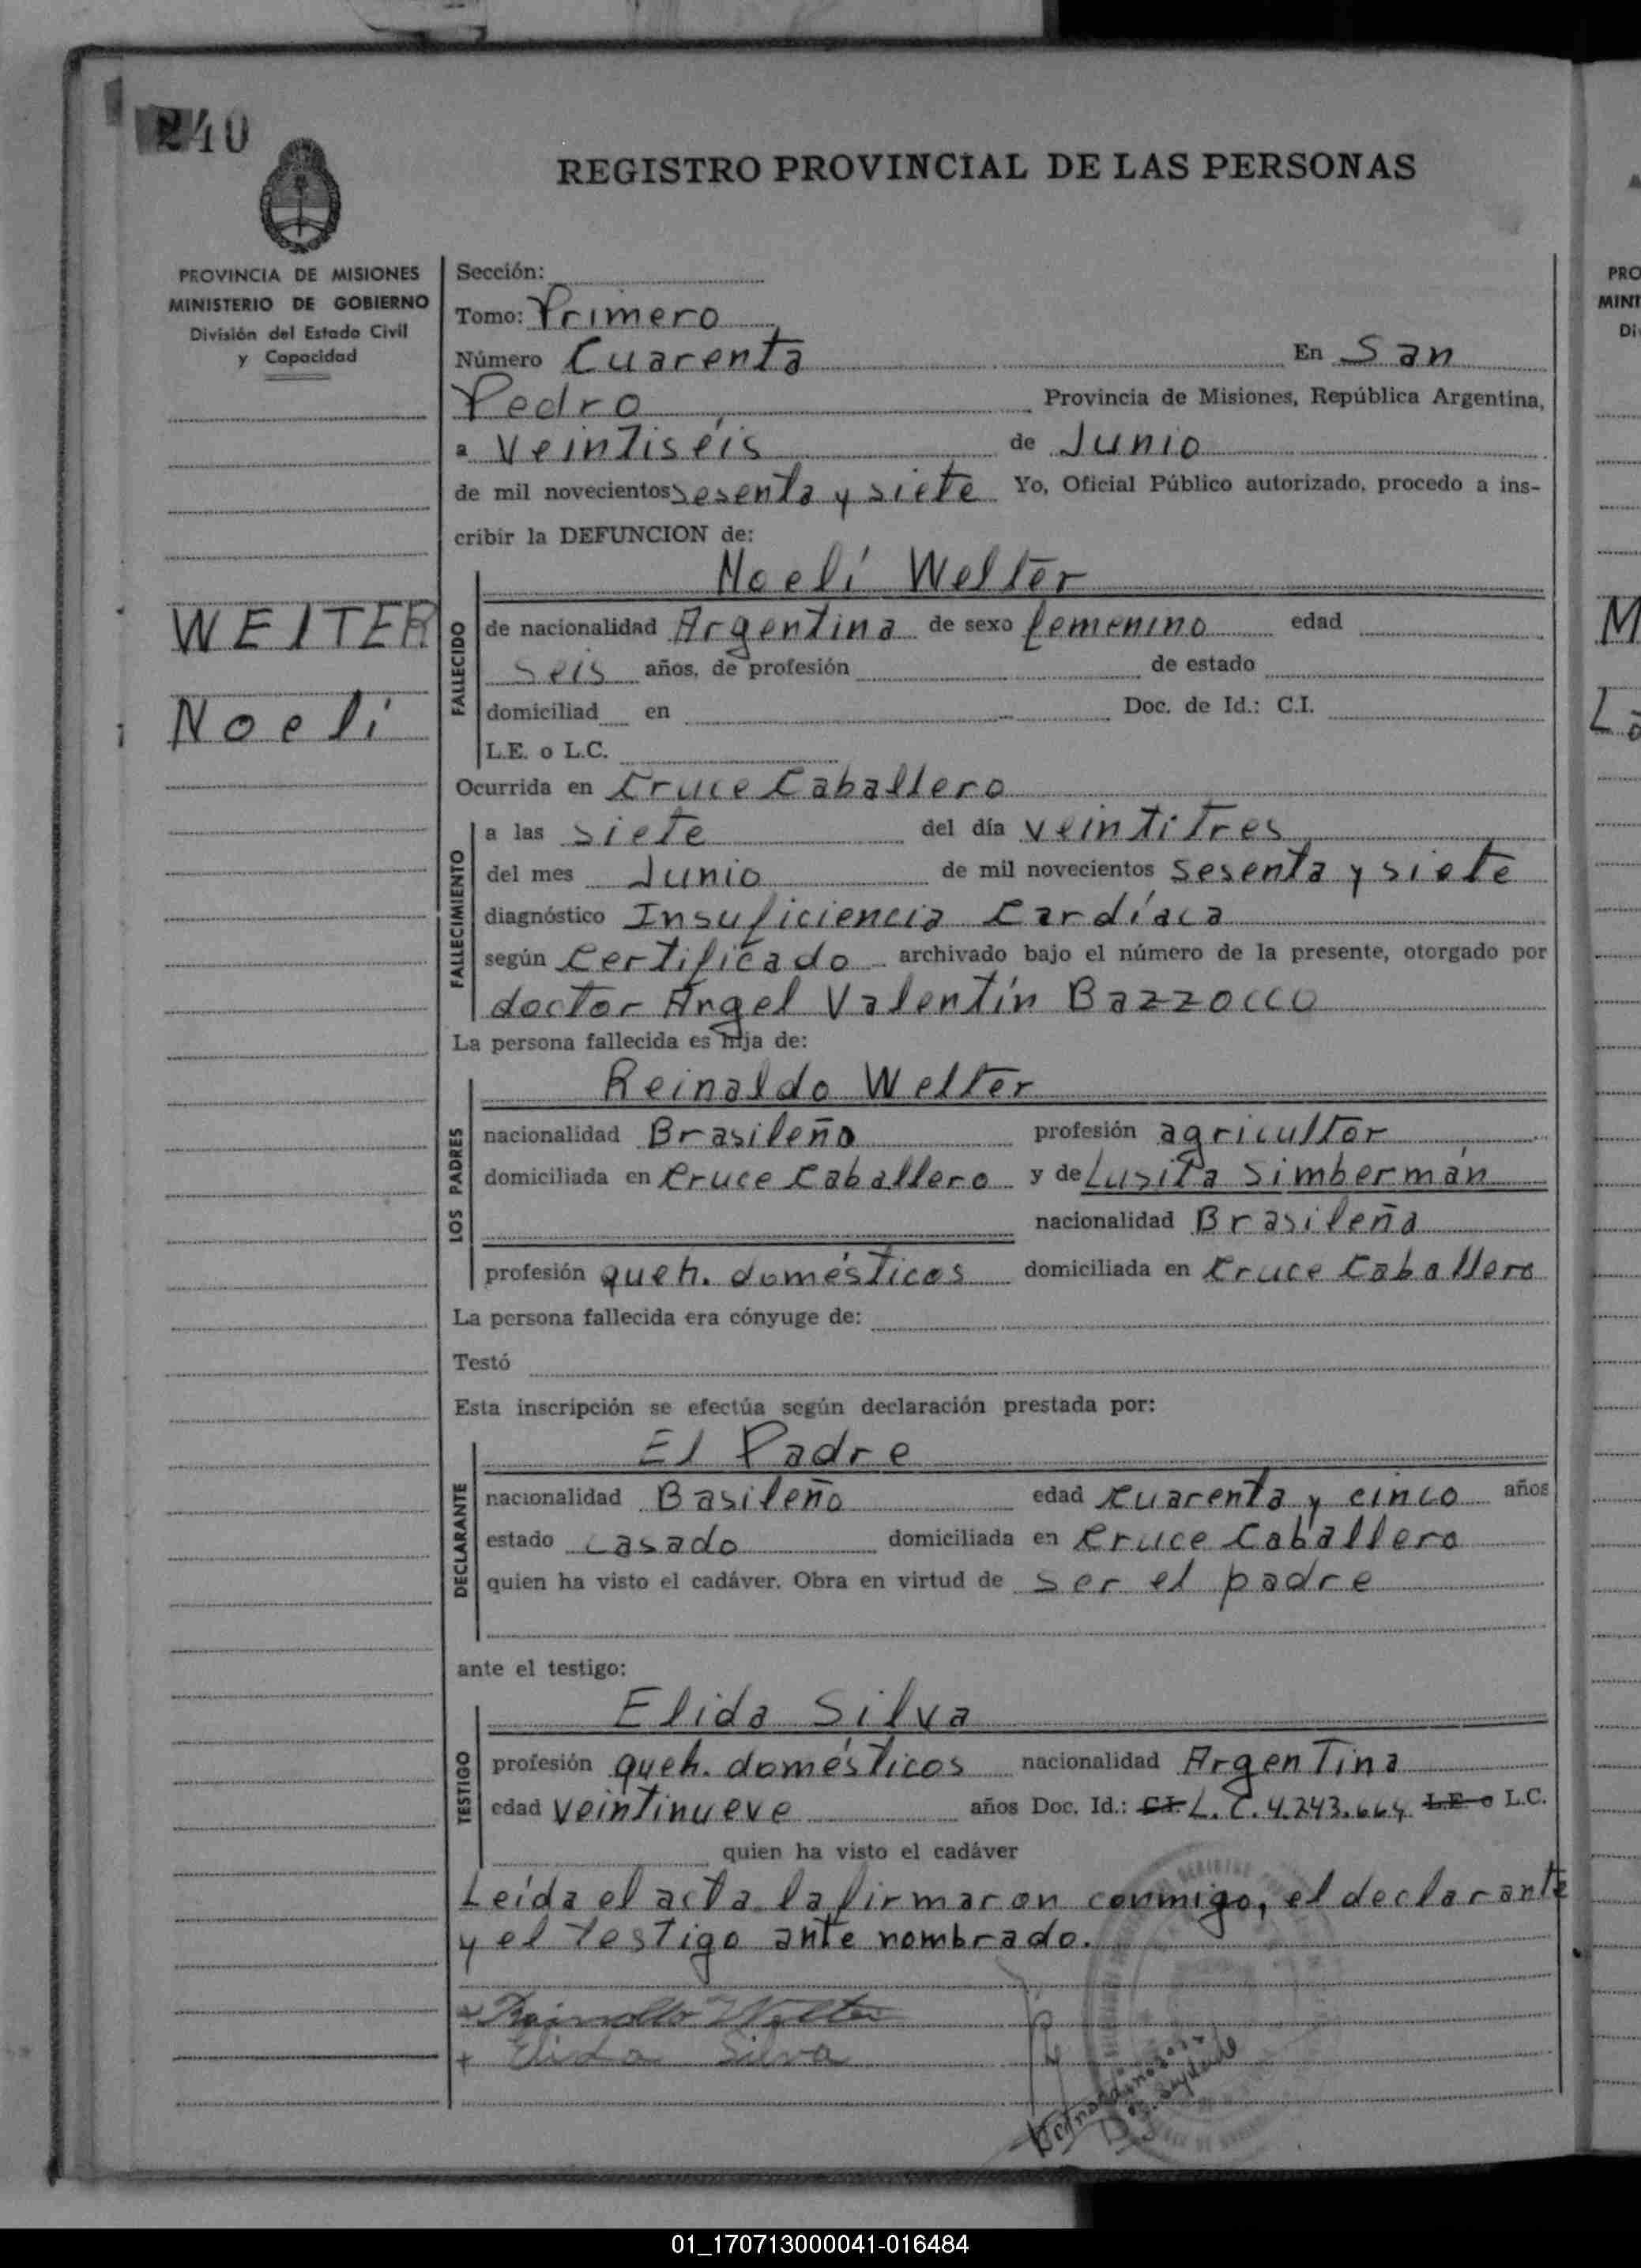 240
REGISTRO PROVINCIAL DE LAS PERSONAS
PROVINCIA DE MISIONES
MINISTERIO DE GOBIERNO
División del Estado Civil
y Capacidad
WELTER
Noelí
Sección:
Tomo: Primero
Número Cuarenta En San
Pedro Provincia de Misiones, República Argentina,
a veintiséis de Junio
de mil novecientos sesenta y siete Yo, Oficial Público autorizado, procedo a ins-
cribir la DEFUNCION de:
Noelí Welter
FALLECIDO
de nacionalidad Argentina de sexo femenino edad
seis años, de profesión de estado
domiciliad en Doc. de Id.: C.I.
L.E. o L.C.
Ocurrida en Cruce Caballero
FALLECIMIENTO
a las siete del día veintitres
del mes Junio de mil novecientos sesenta y siete
diagnóstico Insuficiencia Cardíaca
según Certificado archivado bajo el número de la presente, otorgado por
doctor Angel Valentín Bazzocco
La persona fallecida es hija de:
Reinaldo Welter
LOS PADRES
nacionalidad Brasileño profesión agricultor
domiciliada en Cruce Caballero y de Lusita Simbermán
nacionalidad Brasileña
profesión queh. domésticos domiciliada en Cruce Caballero
La persona fallecida era cónyuge de:
Testó
Esta inscripción se efectúa según declaración prestada por:
El Padre
DECLARANTE
nacionalidad Basileño edad cuarenta y cinco años
estado casado domiciliada en Cruce Caballero
quien ha visto el cadáver. Obra en virtud de ser el padre
ante el testigo:
Elida Silva
TESTIGO
profesión queh. domésticos nacionalidad Argentina
edad veintinueve años Doc. Id.: C.I. L.C. 4.243.664 L.E. o L.C.
quien ha visto el cadáver
Leída el acta la firmaron conmigo, el declarante
y el testigo ante nombrado.
Reinoldo Welter
+ Elida Silva
01_170713000041-016484